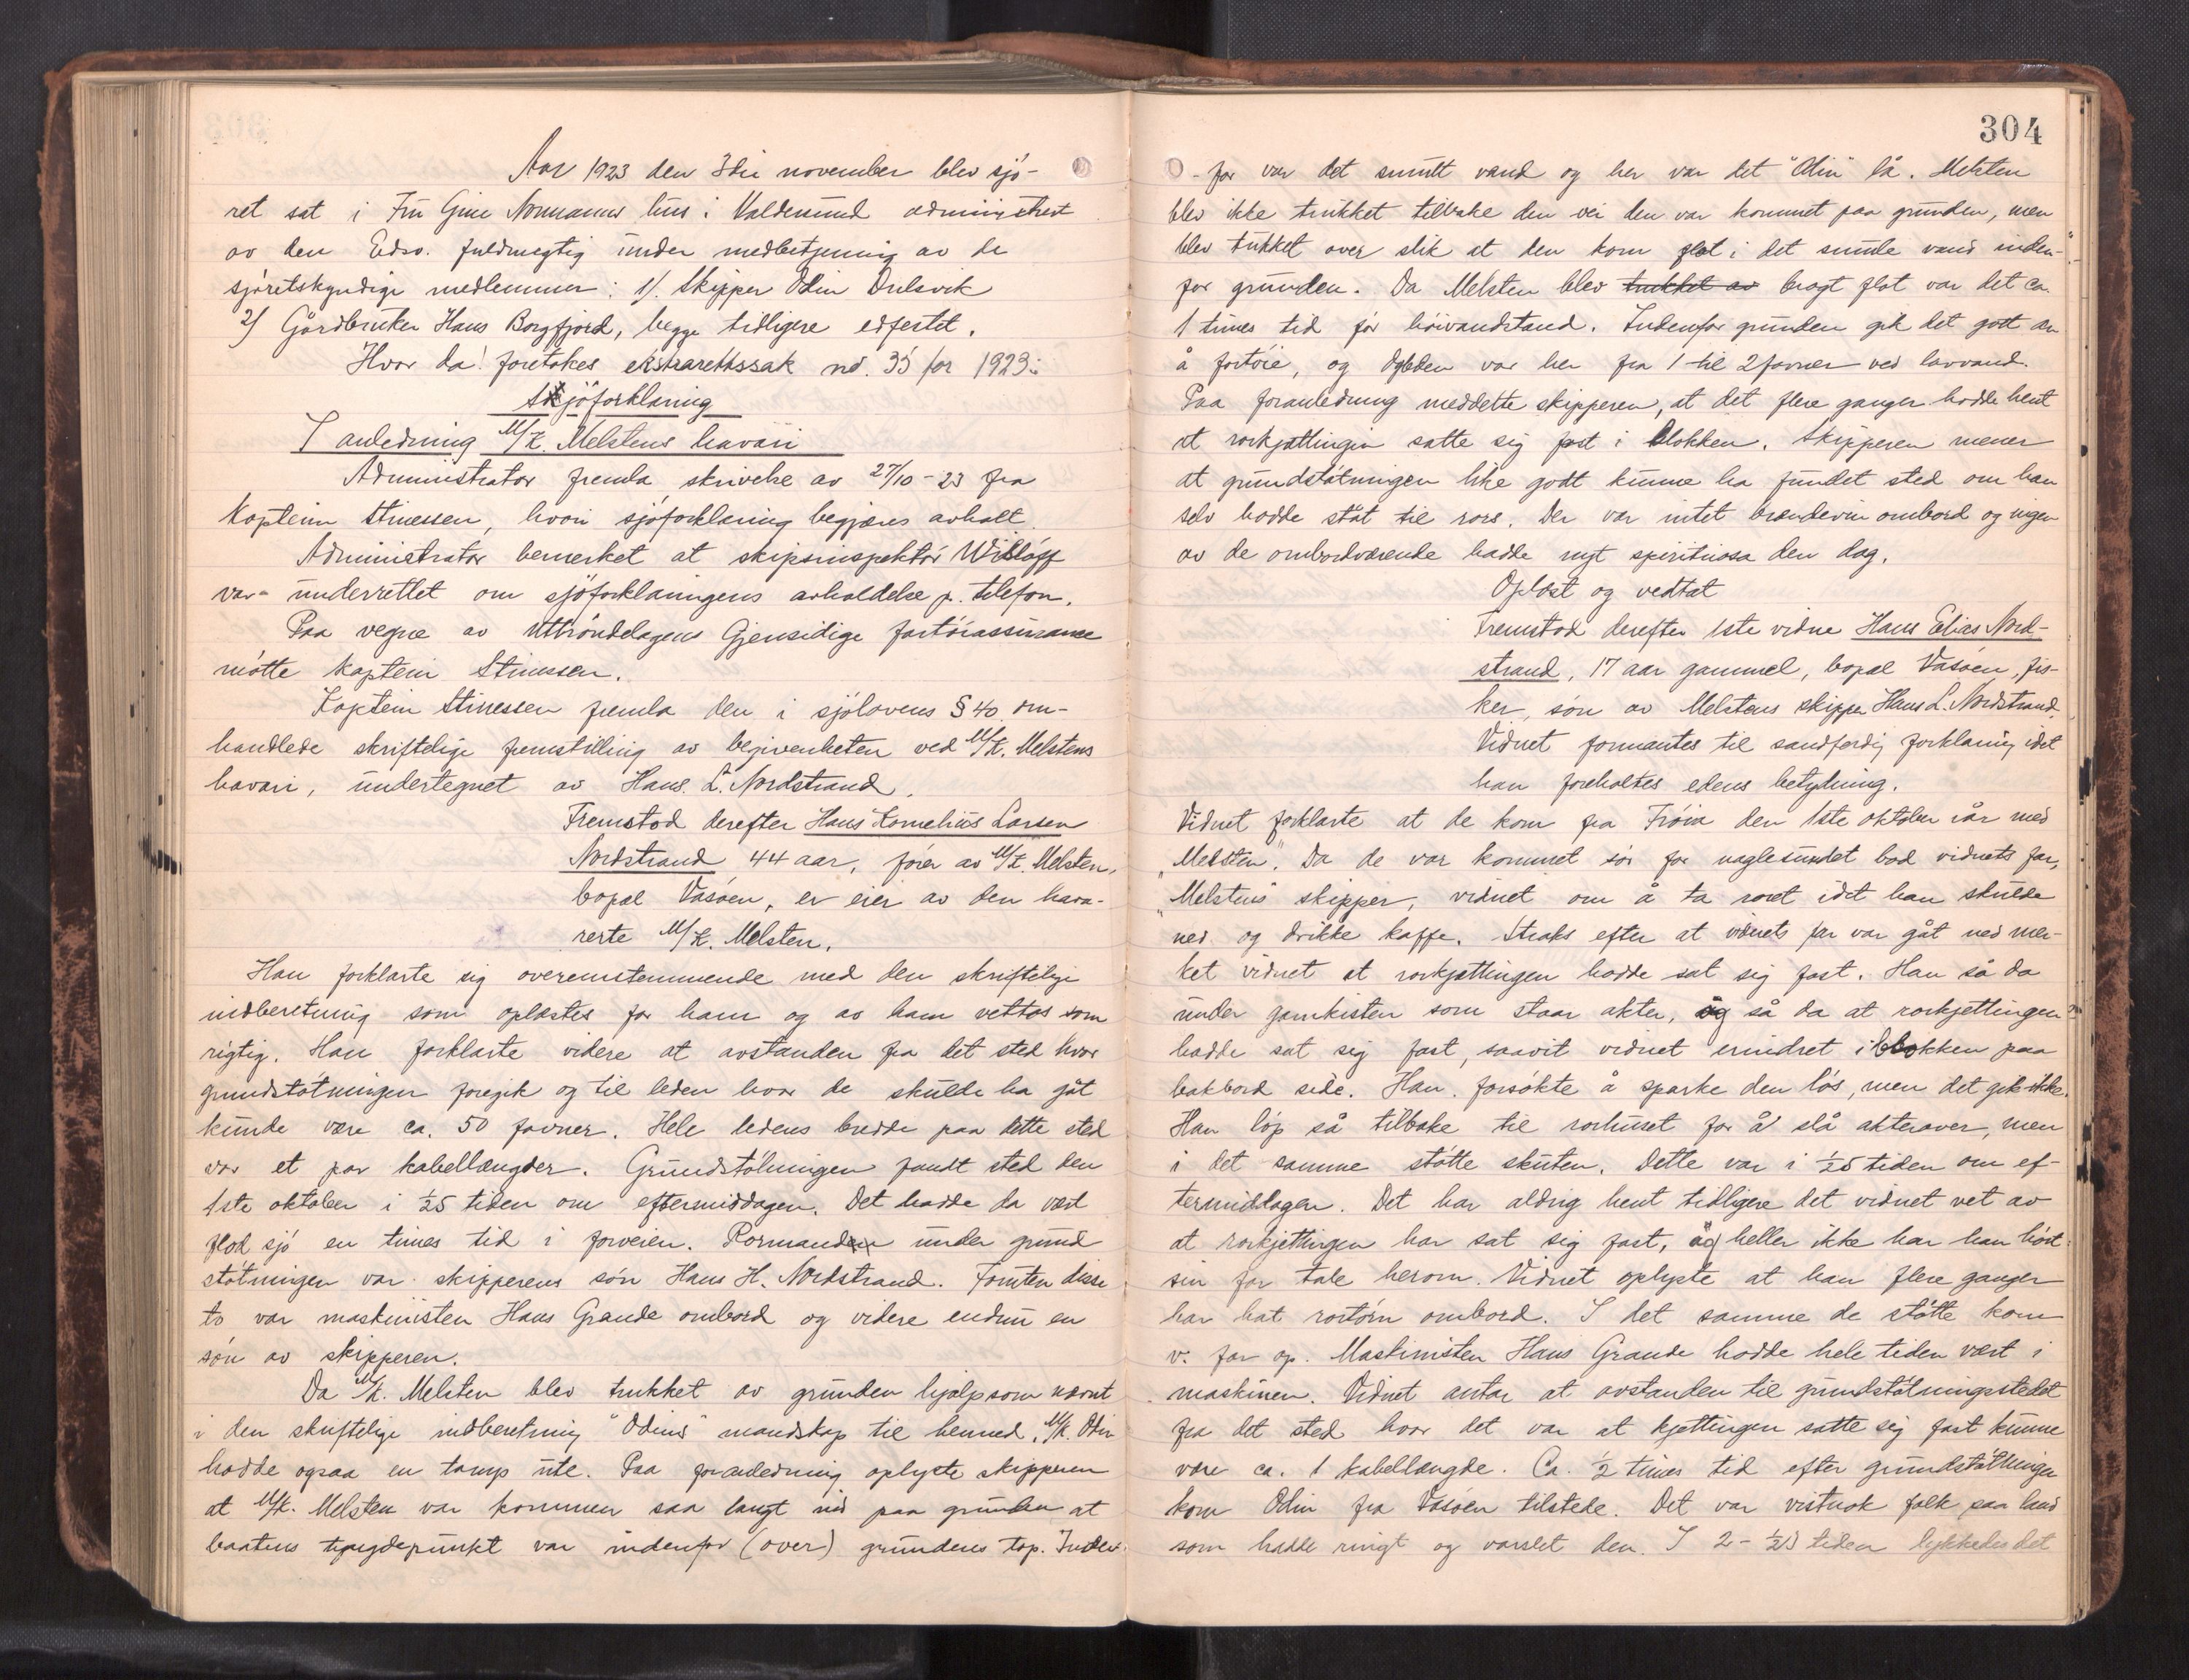 Aar 1923 den 3die november blev sjö-
ret sat i Fru Gine Normanns hus i Valdersund administrert
av den Edsv. fuldmegtig under medbetjening av de
sjöretskyndige medlemmer: 1/. Skipper Odin Dulsvik
2/ Gårdbruker Hans Borgfjord, begge tidligere edfestet.
Hvor da: foretokes ekstraretssak nr. 35 for 1923:
Sjöforklaring
I anledning M/K. Melstens havari
Administrator fremla skrivelse av 27/10-23 fra
Kaptein Stinessen, hvori sjöforklaring begjæres avholt.
Administrator bemerket at skipsinspektör Wisløff
var underrettet om sjöforklaringens avholdelse p. telefon.
Paa vegne av Uttröndelagens Gjensidige fartöiassurance
mötte Kaptein Stinessen.
Kaptein Stinessen fremla den i sjölovens § 40 om-
handlede skriftelige fremstilling av begivenheten ved M/K. Melstens
havari, undertegnet av Hans L. Nordstrand.
Fremstod derefter Hans Kornelius Larsen
Nordstrand 44 aar, förer av M/K. Melsten,
bopæl Vasöen, er eier av den hava-
rerte M/K. Melsten.
Han forklarte sig overensstemmende med den skriftelige
indberetning som oplæstes for ham og av ham vettos som
rigtig. Han forklarte videre at avstanden fra det sted hvor
grundstötningen foregik og til leden hvor de skulde ha gåt
kunde være ca. 50 favner. Hele ledens bredde paa dette sted
var et par kabellængder. Grundstötningen fandt sted den
1ste oktober i ½5 tiden om eftermiddagen. Det hadde da vært
flod sjö en times tid i forveien. Rormanden under grund
stötningen var skipperens sön Hans H. Nordstrand. Foruten disse
to var maskinisten Hans Grande ombord og videre endnu en
sön av skipperen.
Da M/K. Melsten blev trukket av grunden hjalp som nævnt
i den skriftelige indberetning "Odins" mandskap til hermed. M/K. Odin
hadde ogsaa en tamp ute. Paa foranledning oplyste skipperen
at M/K. Melsten var kommen saa langt ind paa grunden at
baatens tyngdepunkt var indenfor (over) grundens top. Inden-
304
- for var det smult vand og her var det "Odin" lå. Melsten
blev ikke trukket tilbake den vei den var kommet paa grunden, men
blev trukket over slik at den kom flot i det smule vand inden-
for grunden. Da Melsten blev trukket av bragt flot var det ca.
1 times tid för höivandstand. Indenfor grunden gik det godt an
å fortöie, og dybden var her fra 1 til 2 favner ved lavvand.
Paa foranledning meddelte skipperen, at det flere ganger hadde hent
at rorkjættingen satte sig fast i blokken. Skipperen mener
at grundstötningen like godt kunne ha fundet sted om han
selv hadde ståt til rors. Der var intet brændevin ombord og ingen
av de ombordværende hadde nyt spirituosa den dag.
Oplæst og vedtat
Fremstod derefter 1ste vidne Hans Elias Nord-
strand, 17 aar gammel, bopæl Vasöen, fis-
ker, sön av Melstens skipper Hans L. Nordstrand.
Vidnet formantes til sandferdig forklaring idet
han foreholtes edens betydning.
Vidnet forklarte at de kom fra Fröia den 1ste oktober iår med
"Melsten". Da de var kommet sör for naglesundet bad vidnets far,
"Melstens" skipper, vidnet om å ta roret idet han skulde
ned og drikke kaffe. Straks efter at vidnets far var gåt ned mer-
ket vidnet at rorkjættingen hadde sat sig fast. Han så da
under garnkisten som staar akter, og så da at rorkjettingen
hadde sat sig fast, saavit vidnet erindret i blokken paa
bakbord side. Han forsökte å sparke den lös, men det gik ikke.
Han löp så tilbake til rorhuset for å slå akterover, men
i det samme stötte skuten. Dette var i ½5 tiden om ef-
termiddagen. Det har aldrig hent tidligere det vidnet vet av
at rorkjettingen har sat sig fast, og heller ikke har han hört
sin far tale herom. Vidnet oplyste at han flere ganger
har hat rortörn ombord. I det samme de stötte kom
v. far op. Maskinisten Hans Grande hadde hele tiden vært i
maskinen. Vidnet antar at avstanden til grundstötningsstedet
fra det sted hvor det var at kjettingen satte sig fast kunne
være ca. 1 kabellængde. Ca. ½ times tid efter grundstötningen
kom Odin fra Vasöen tilstede. Det var vistnok folk paa land
som hadde ringt og varslet den. I 2 - ½3 tiden lykkedes det